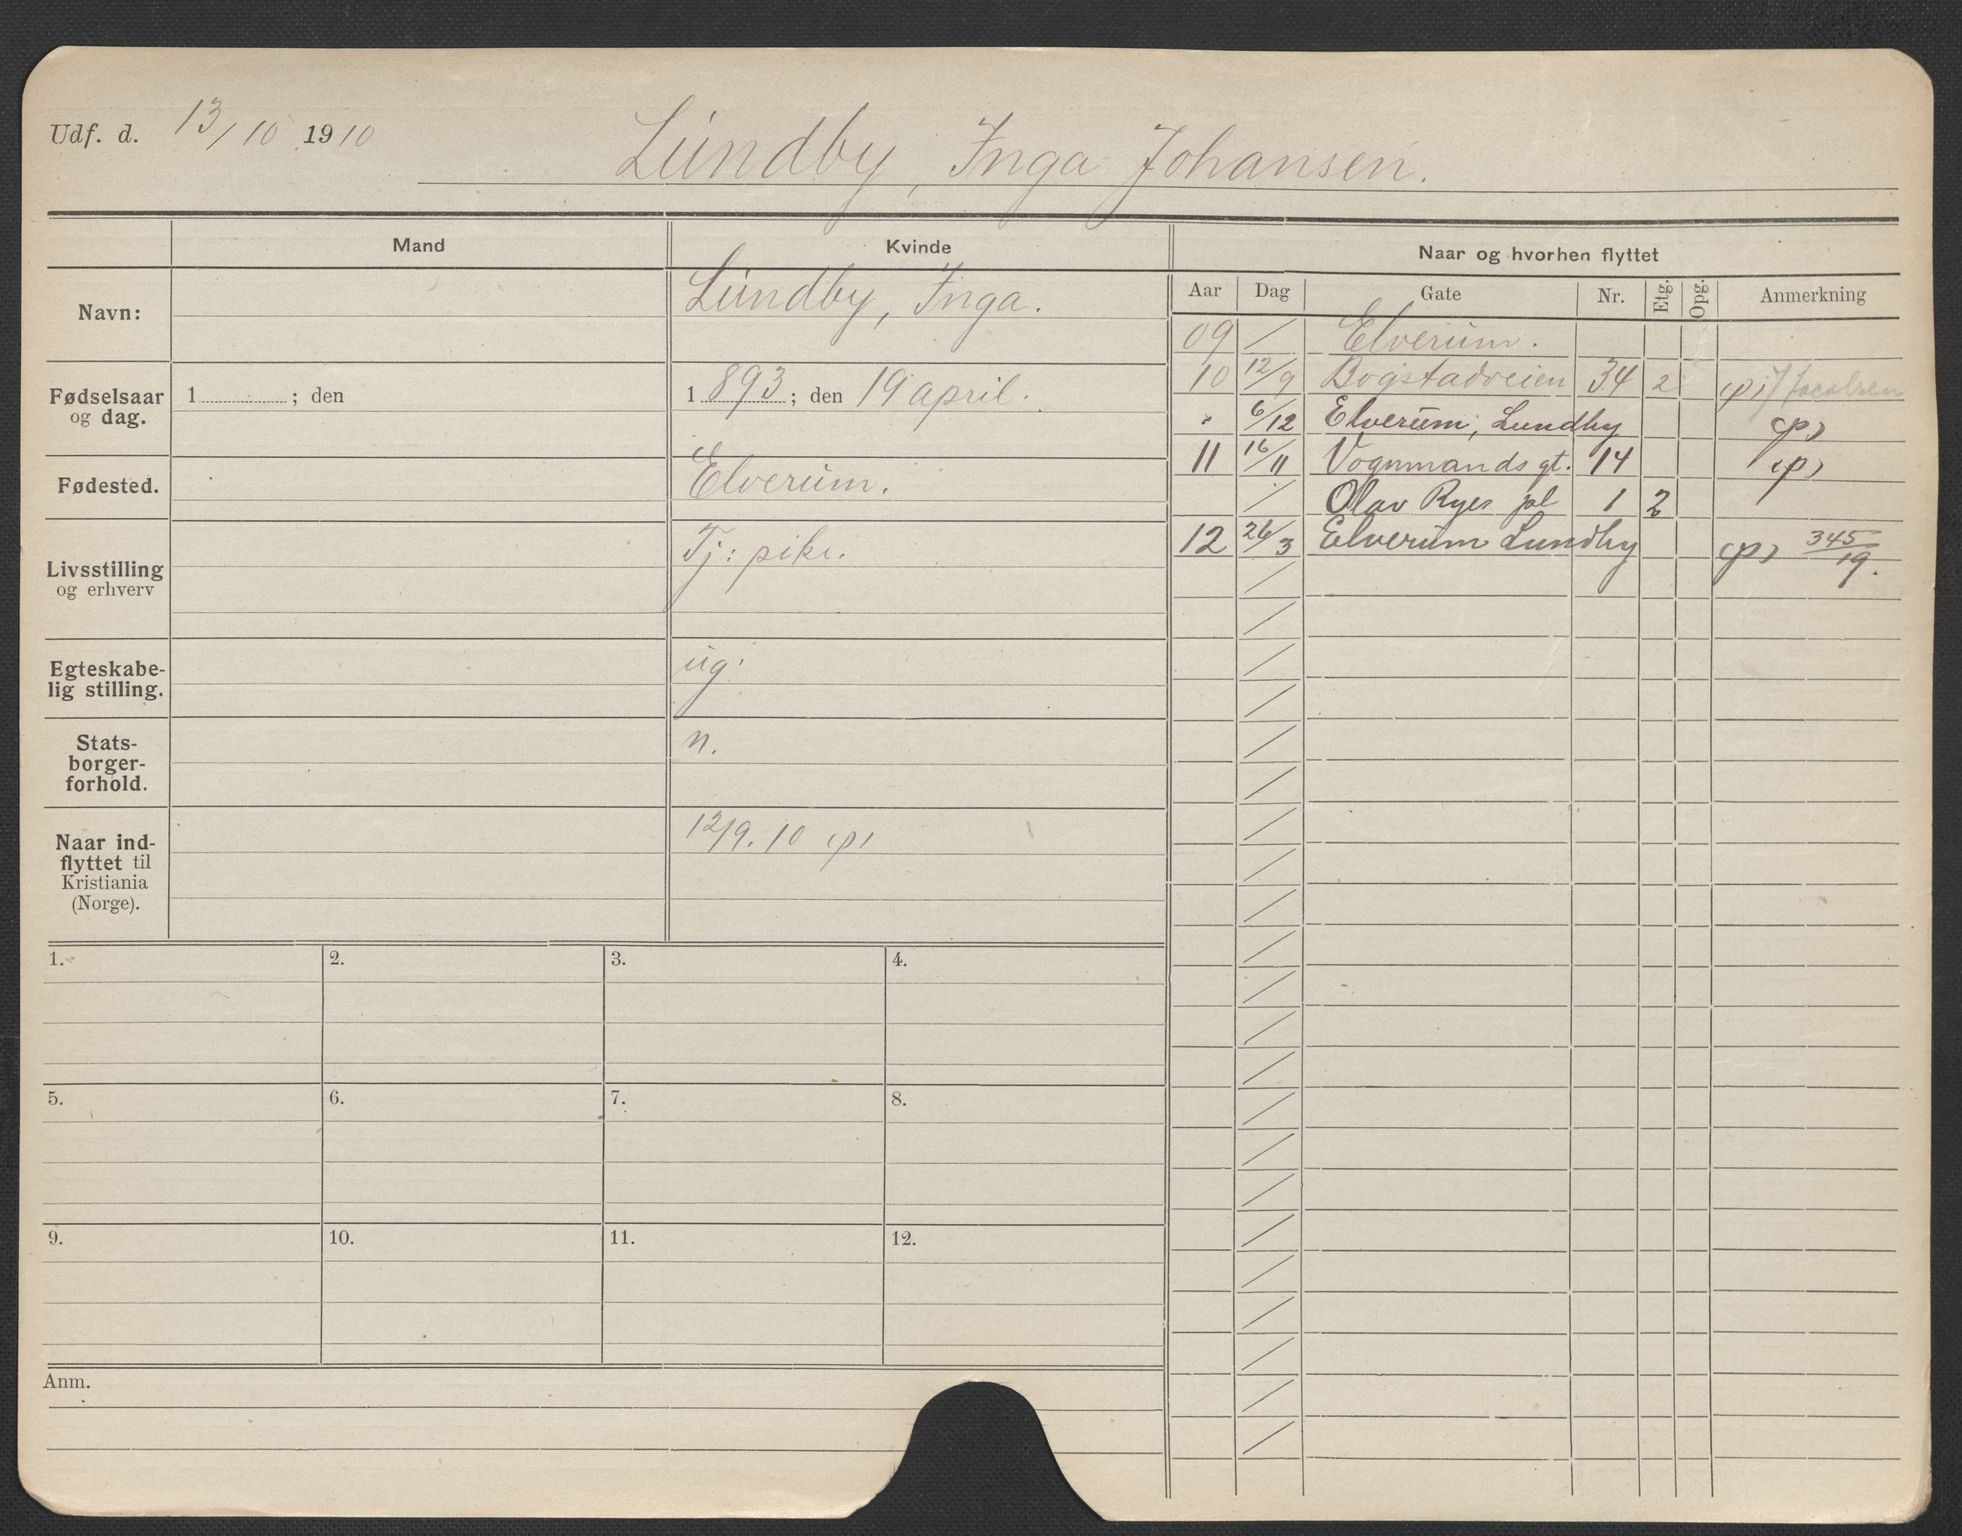 Udf. d. 13/10 1910
Lundby, Inga Johansen.
Mand
Kvinde
Naar og hvorhen flyttet
Navn:
Lundby, Inga.
Fødselsaar og dag.
1 ; den
1 893 ; den 19 april.
Fødested.
Elverum.
Livsstilling og erhverv
Tj: pike.
Egteskabe-
lig stilling.
ug.
Stats-
borger-
forhold.
n.
Naar ind-
flyttet til
Kristiania
(Norge).
12/9. 10 (p)
Aar Dag Gate Nr. Etg. Opg. Anmerkning
09 / Elverum.
10 12/9 Bogstadveien 34 2 (p) J Jacobsen
" 6/12 Elverum, Lundby (p)
11 16/11 Vognmandsgt. 14 (p)
/ Olav Ryes pl 1 2
12 26/3 Elverum Lundby (p) 345/19.
1. 2. 3. 4.
5. 6. 7. 8.
9. 10. 11. 12.
Anm.